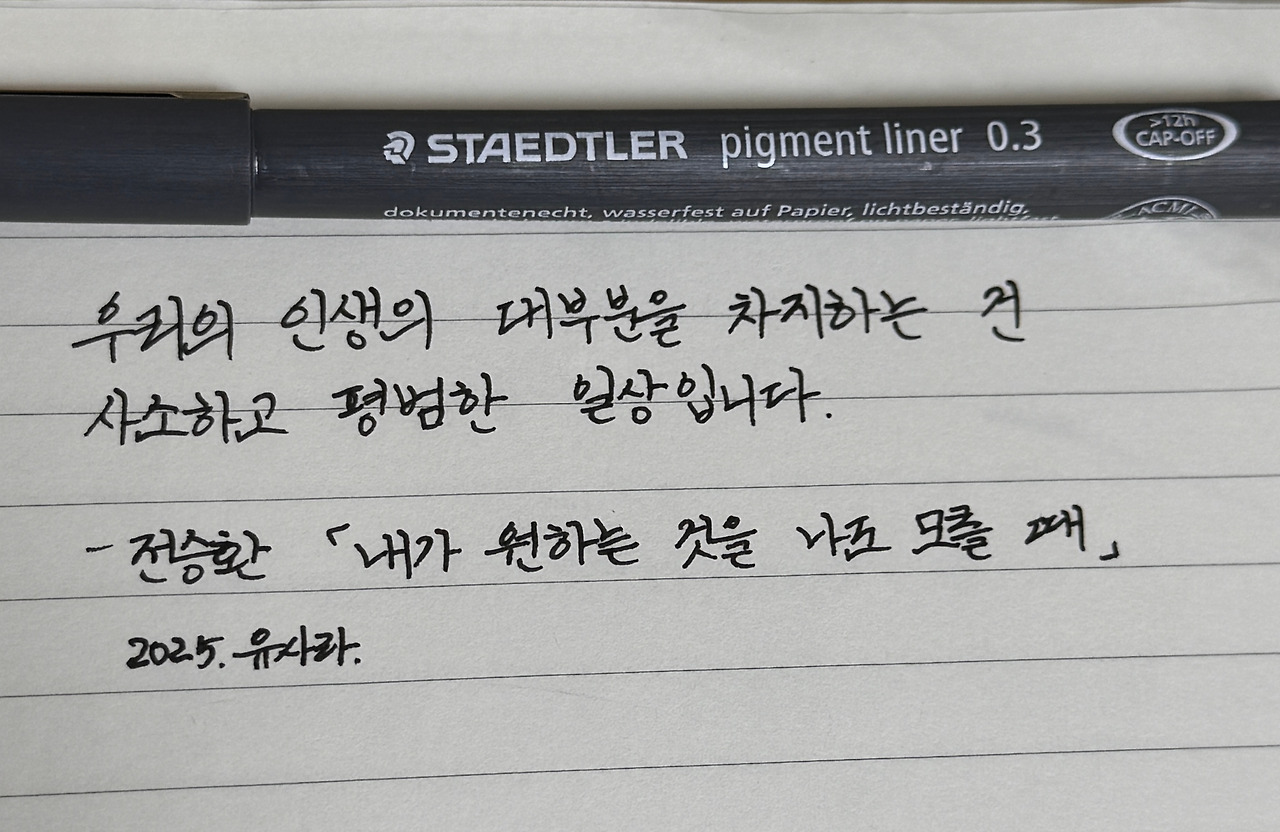 STAEDTLER pigment liner 0.3
>12h
CAP-OFF
dokumentenecht, wasserfest auf Papier, lichtbeständig,
우리의 인생의 대부분을 차지하는 건
사소하고 평범한 일상입니다.
- 전승환 「내가 원하는 것을 나도 모를 때」
2025. 유사라.